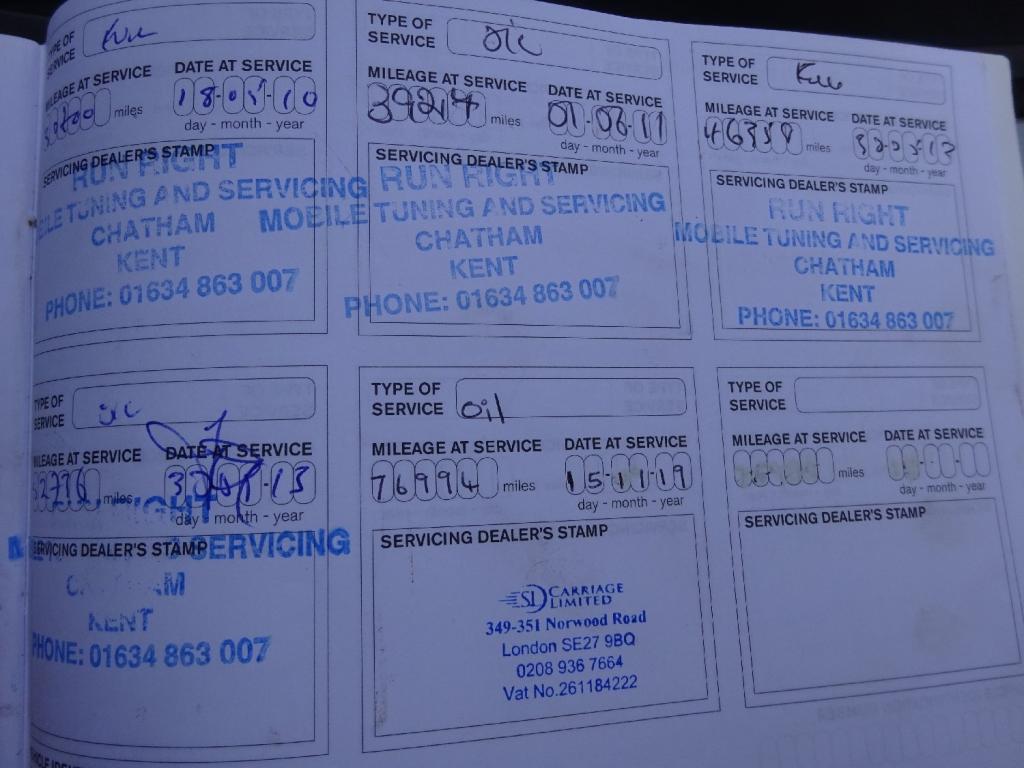 TYPE OF SERVICE Full
MILEAGE AT SERVICE
miles
DATE AT SERVICE
18-05-10
day - month - year
SERVICING DEALER'S STAMP
RUN RIGHT
TUNING AND SERVICING
CHATHAM
KENT
PHONE: 01634 863 007
TYPE OF SERVICE
MILEAGE AT SERVICE
miles
DATE AT SERVICE
01-06-11
day - month - year
SERVICING DEALER'S STAMP
RUN RIGHT
MOBILE TUNING AND SERVICING
CHATHAM
KENT
PHONE: 01634 863 007
TYPE OF SERVICE Full
MILEAGE AT SERVICE
miles
DATE AT SERVICE
day - month - year
SERVICING DEALER'S STAMP
RUN RIGHT
MOBILE TUNING AND SERVICING
CHATHAM
KENT
PHONE: 01634 863 007
TYPE OF SERVICE
MILEAGE AT SERVICE
miles
DATE AT SERVICE
day - month - year
SERVICING DEALER'S STAMP
SERVICING
KENT
PHONE: 01634 863 007
TYPE OF SERVICE oil
MILEAGE AT SERVICE
76994 miles
DATE AT SERVICE
15-11-19
day - month - year
SERVICING DEALER'S STAMP
SD CARRIAGE
LIMITED
349-351 Norwood Road
London SE27 9BQ
0208 936 7664
Vat No.261184222
TYPE OF SERVICE
MILEAGE AT SERVICE
miles
DATE AT SERVICE
day - month - year
SERVICING DEALER'S STAMP